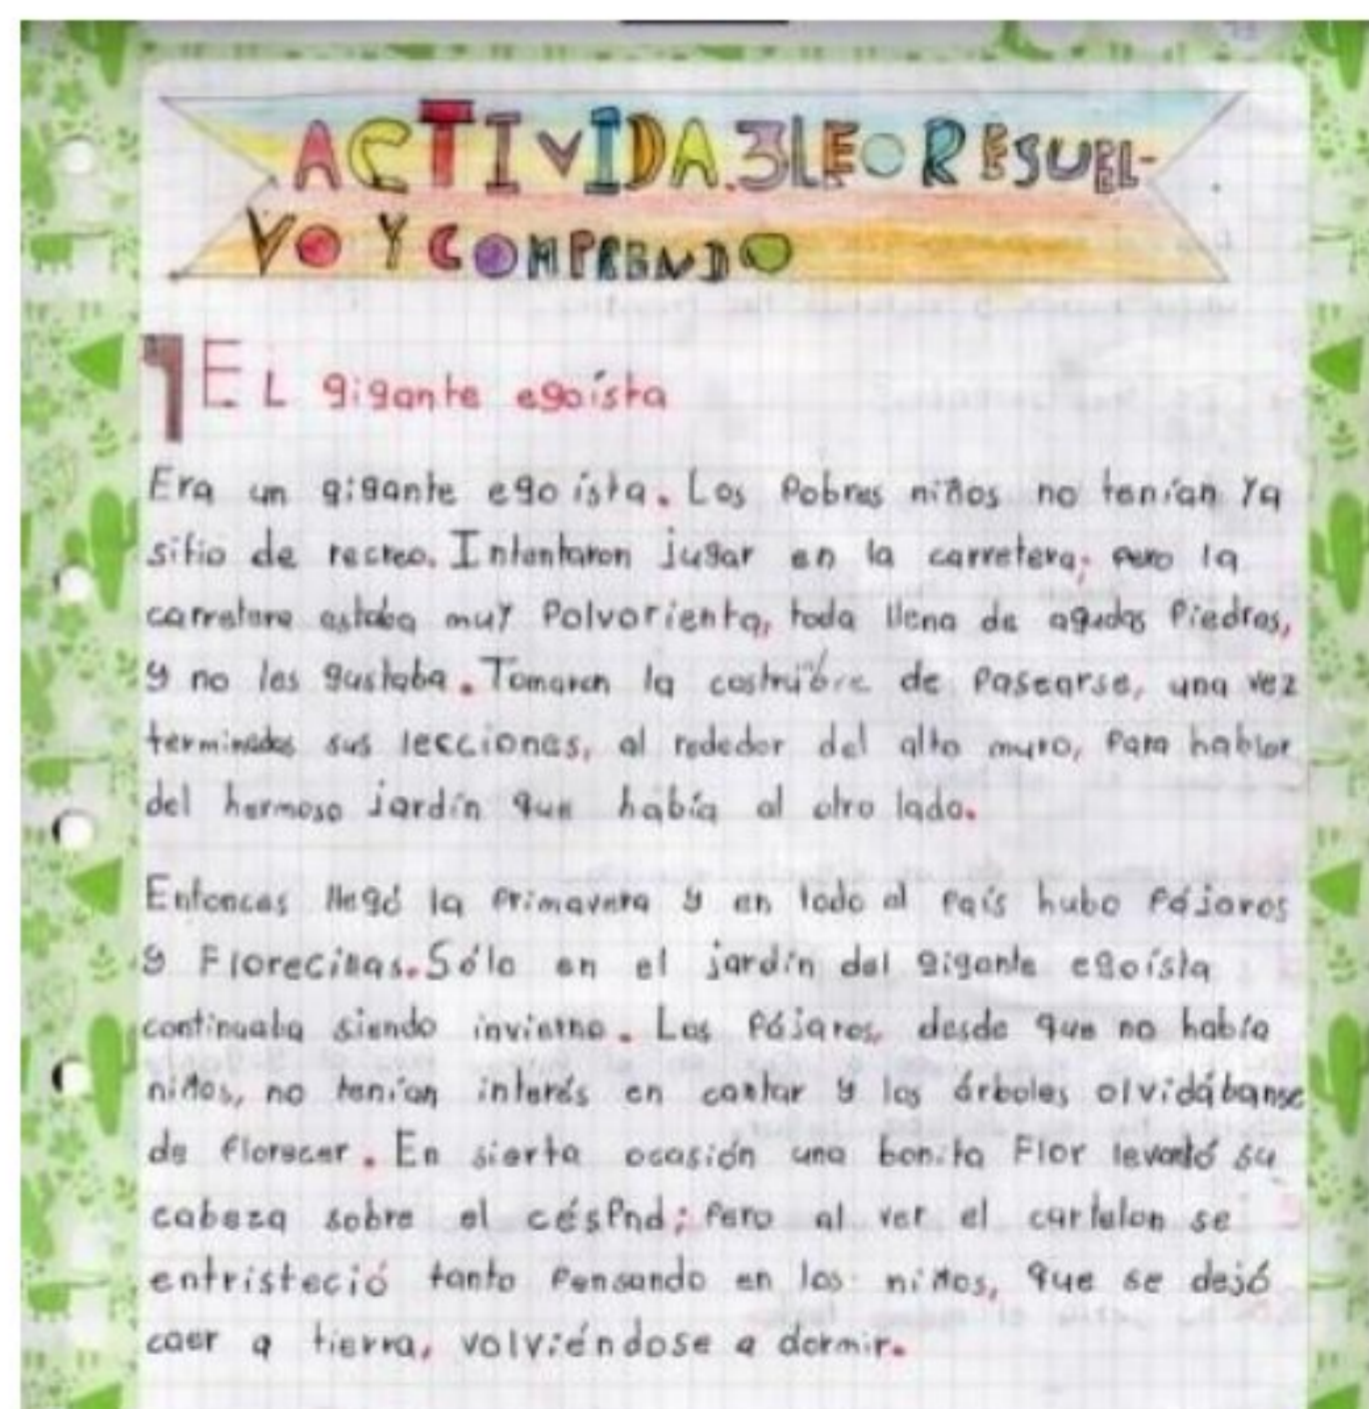 ACTIVIDA.3LEO RESUEL-
VO Y COMPRENDO
1 EL gigante egoísta
Era un gigante egoísta. Los Pobres niños no tenían Ya
sitio de recreo. Intentaron jugar en la carretera; pero la
carretera estaba muy Polvorienta, toda llena de agudas Piedras,
y no les gustaba. Tomaron la costrúbre de Pasearse, una vez
terminadas sus lecciones, al rededor del alto muro, Para hablar
del hermoso jardín que había al otro lado.
Entonces llegó la Primavera y en todo el país hubo Pájaros
y Florecillas. Sólo en el jardín del gigante egoísta
continuaba siendo invierno. Los Pájaros, desde que no había
niños, no tenían interés en cantar y los árboles olvidábanse
de florecer. En sierta ocasión una bonita Flor levantó su
cabeza sobre el césPed; Pero al ver el cartelon se
entristeció tanto Pensando en los niños, que se dejó
caer a tierra, volviéndose a dormir.